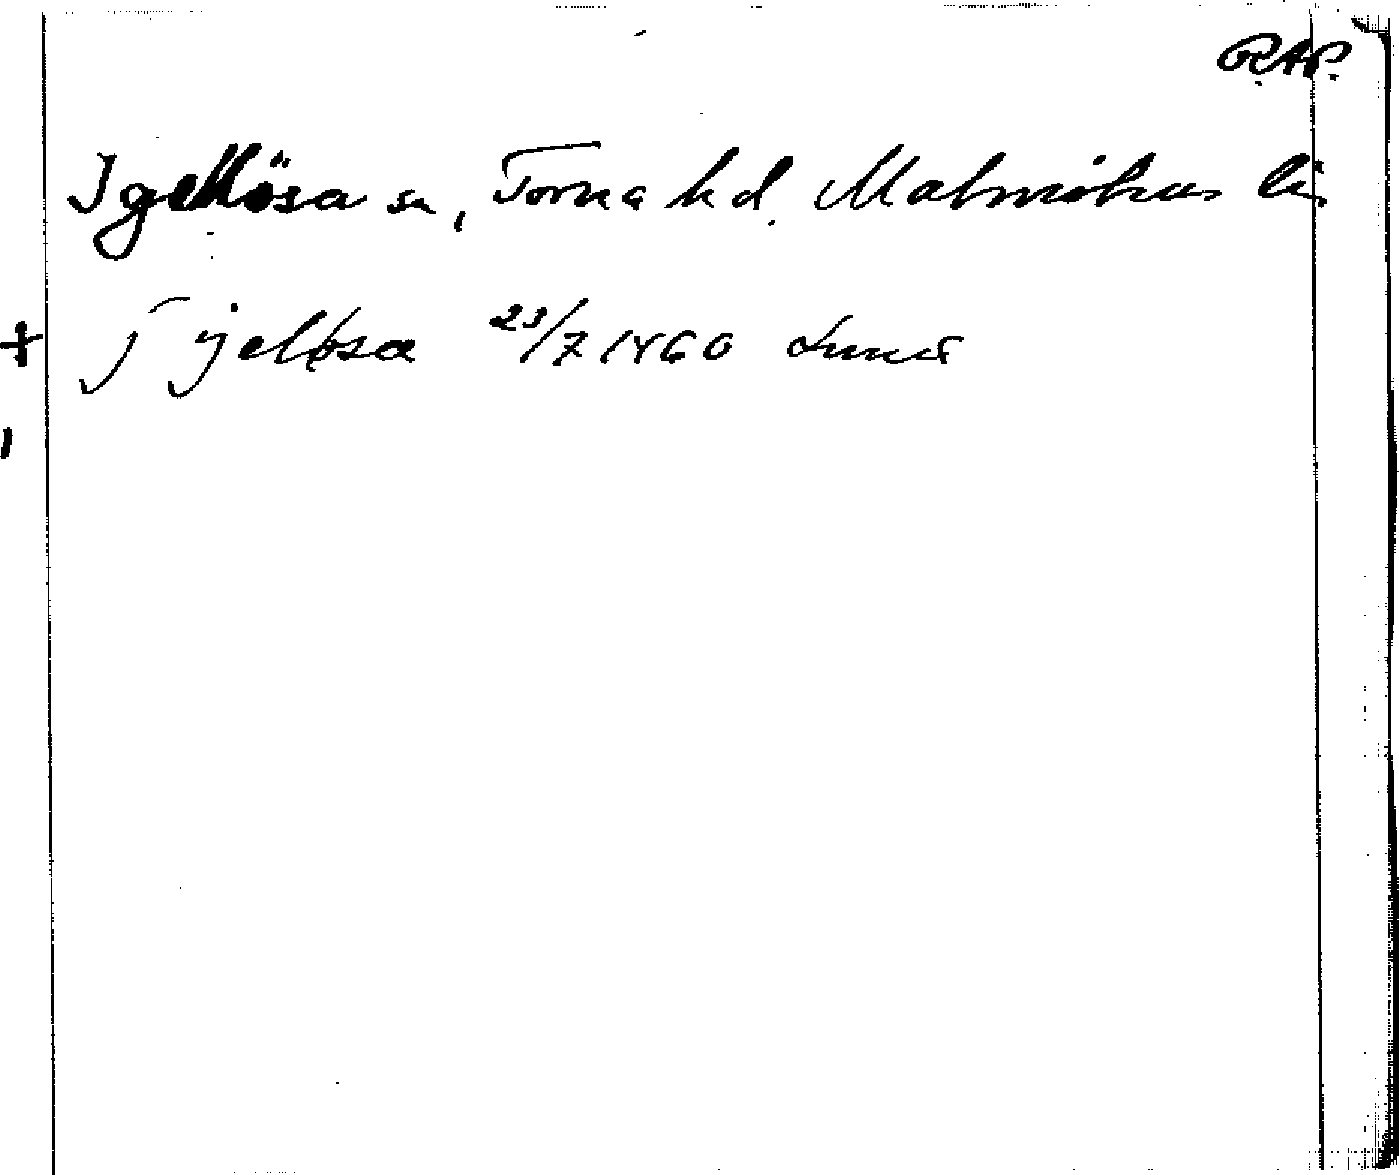 RAP.
Igellösa sn, Torna hd. Malmöhus län
j jgeløsa 23/7 1460 Lund